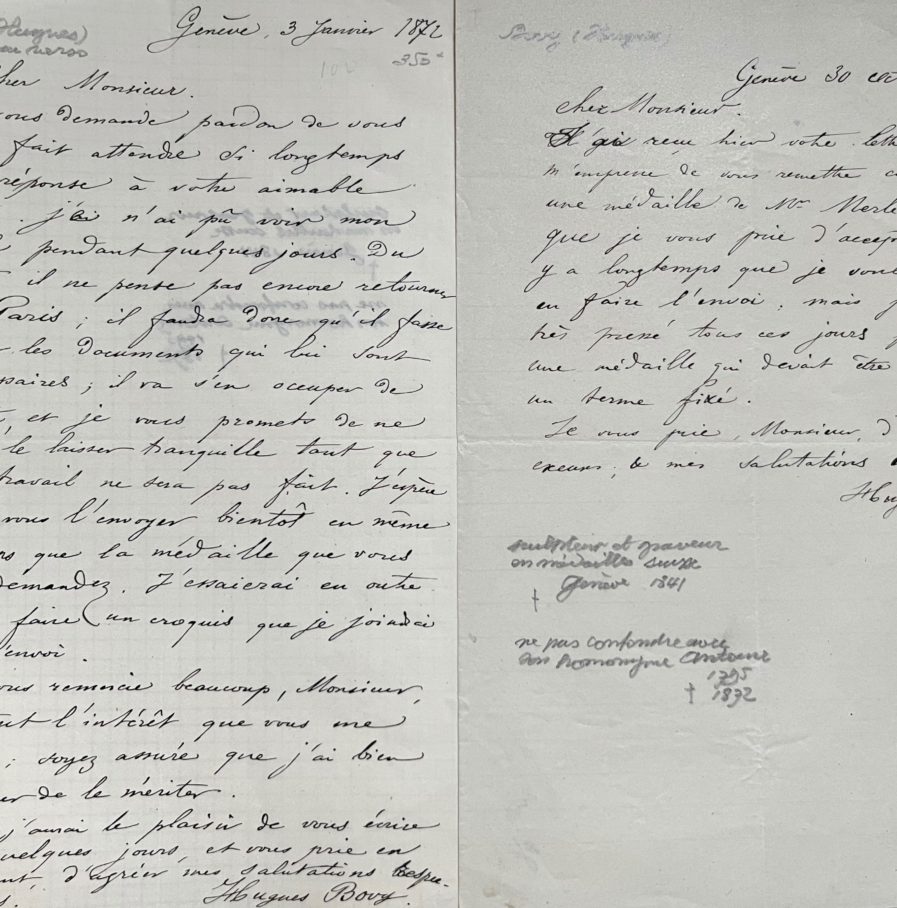 Hugues)
au verso
Genève, 3 Janvier 1872
350
102
cher Monsieur.
vous demande pardon de vous
fait attendre si longtemps
réponse à votre aimable
j'ai n'ai pû voir mon
pendant quelques jours. Du
il ne pense pas encore retourner
Paris; il faudra donc qu'il fasse
les documents qui lui sont
saires; il va s'en occuper de
, et je vous promets de ne
le laisser tranquille tant que
travail ne sera pas fait. J'espère
vous l'envoyer bientôt en même
que la médaille que vous
demandez. J'essaierai en outre
faire un croquis que je joindrai
envoi.
vous remercie beaucoup, Monsieur,
l'intérêt que vous me
; soyez assuré que j'ai bien
de le mériter.
j'aurai le plaisir de vous écrire
quelques jours, et vous prie en
d'agréer mes salutations respec-
Hugues Bovy.
Bovy (Hugues)
Genève 30
cher Monsieur.
reçu hier votre lett
m'empresse de vous remettre
une médaille de Mr. Merle
que je vous prie d'accep
y a longtemps que je
en faire l'envoi; mais
très pressé tous ces jours
une médaille qui devait être
un terme fixé.
Je vous prie, Monsieur, d
excuses, & mes salutations
Hug
sculpteur et graveur
en médailles suisse
Genève 1841
†
ne pas confondre avec
son homonyme Antoine
1795
† 18